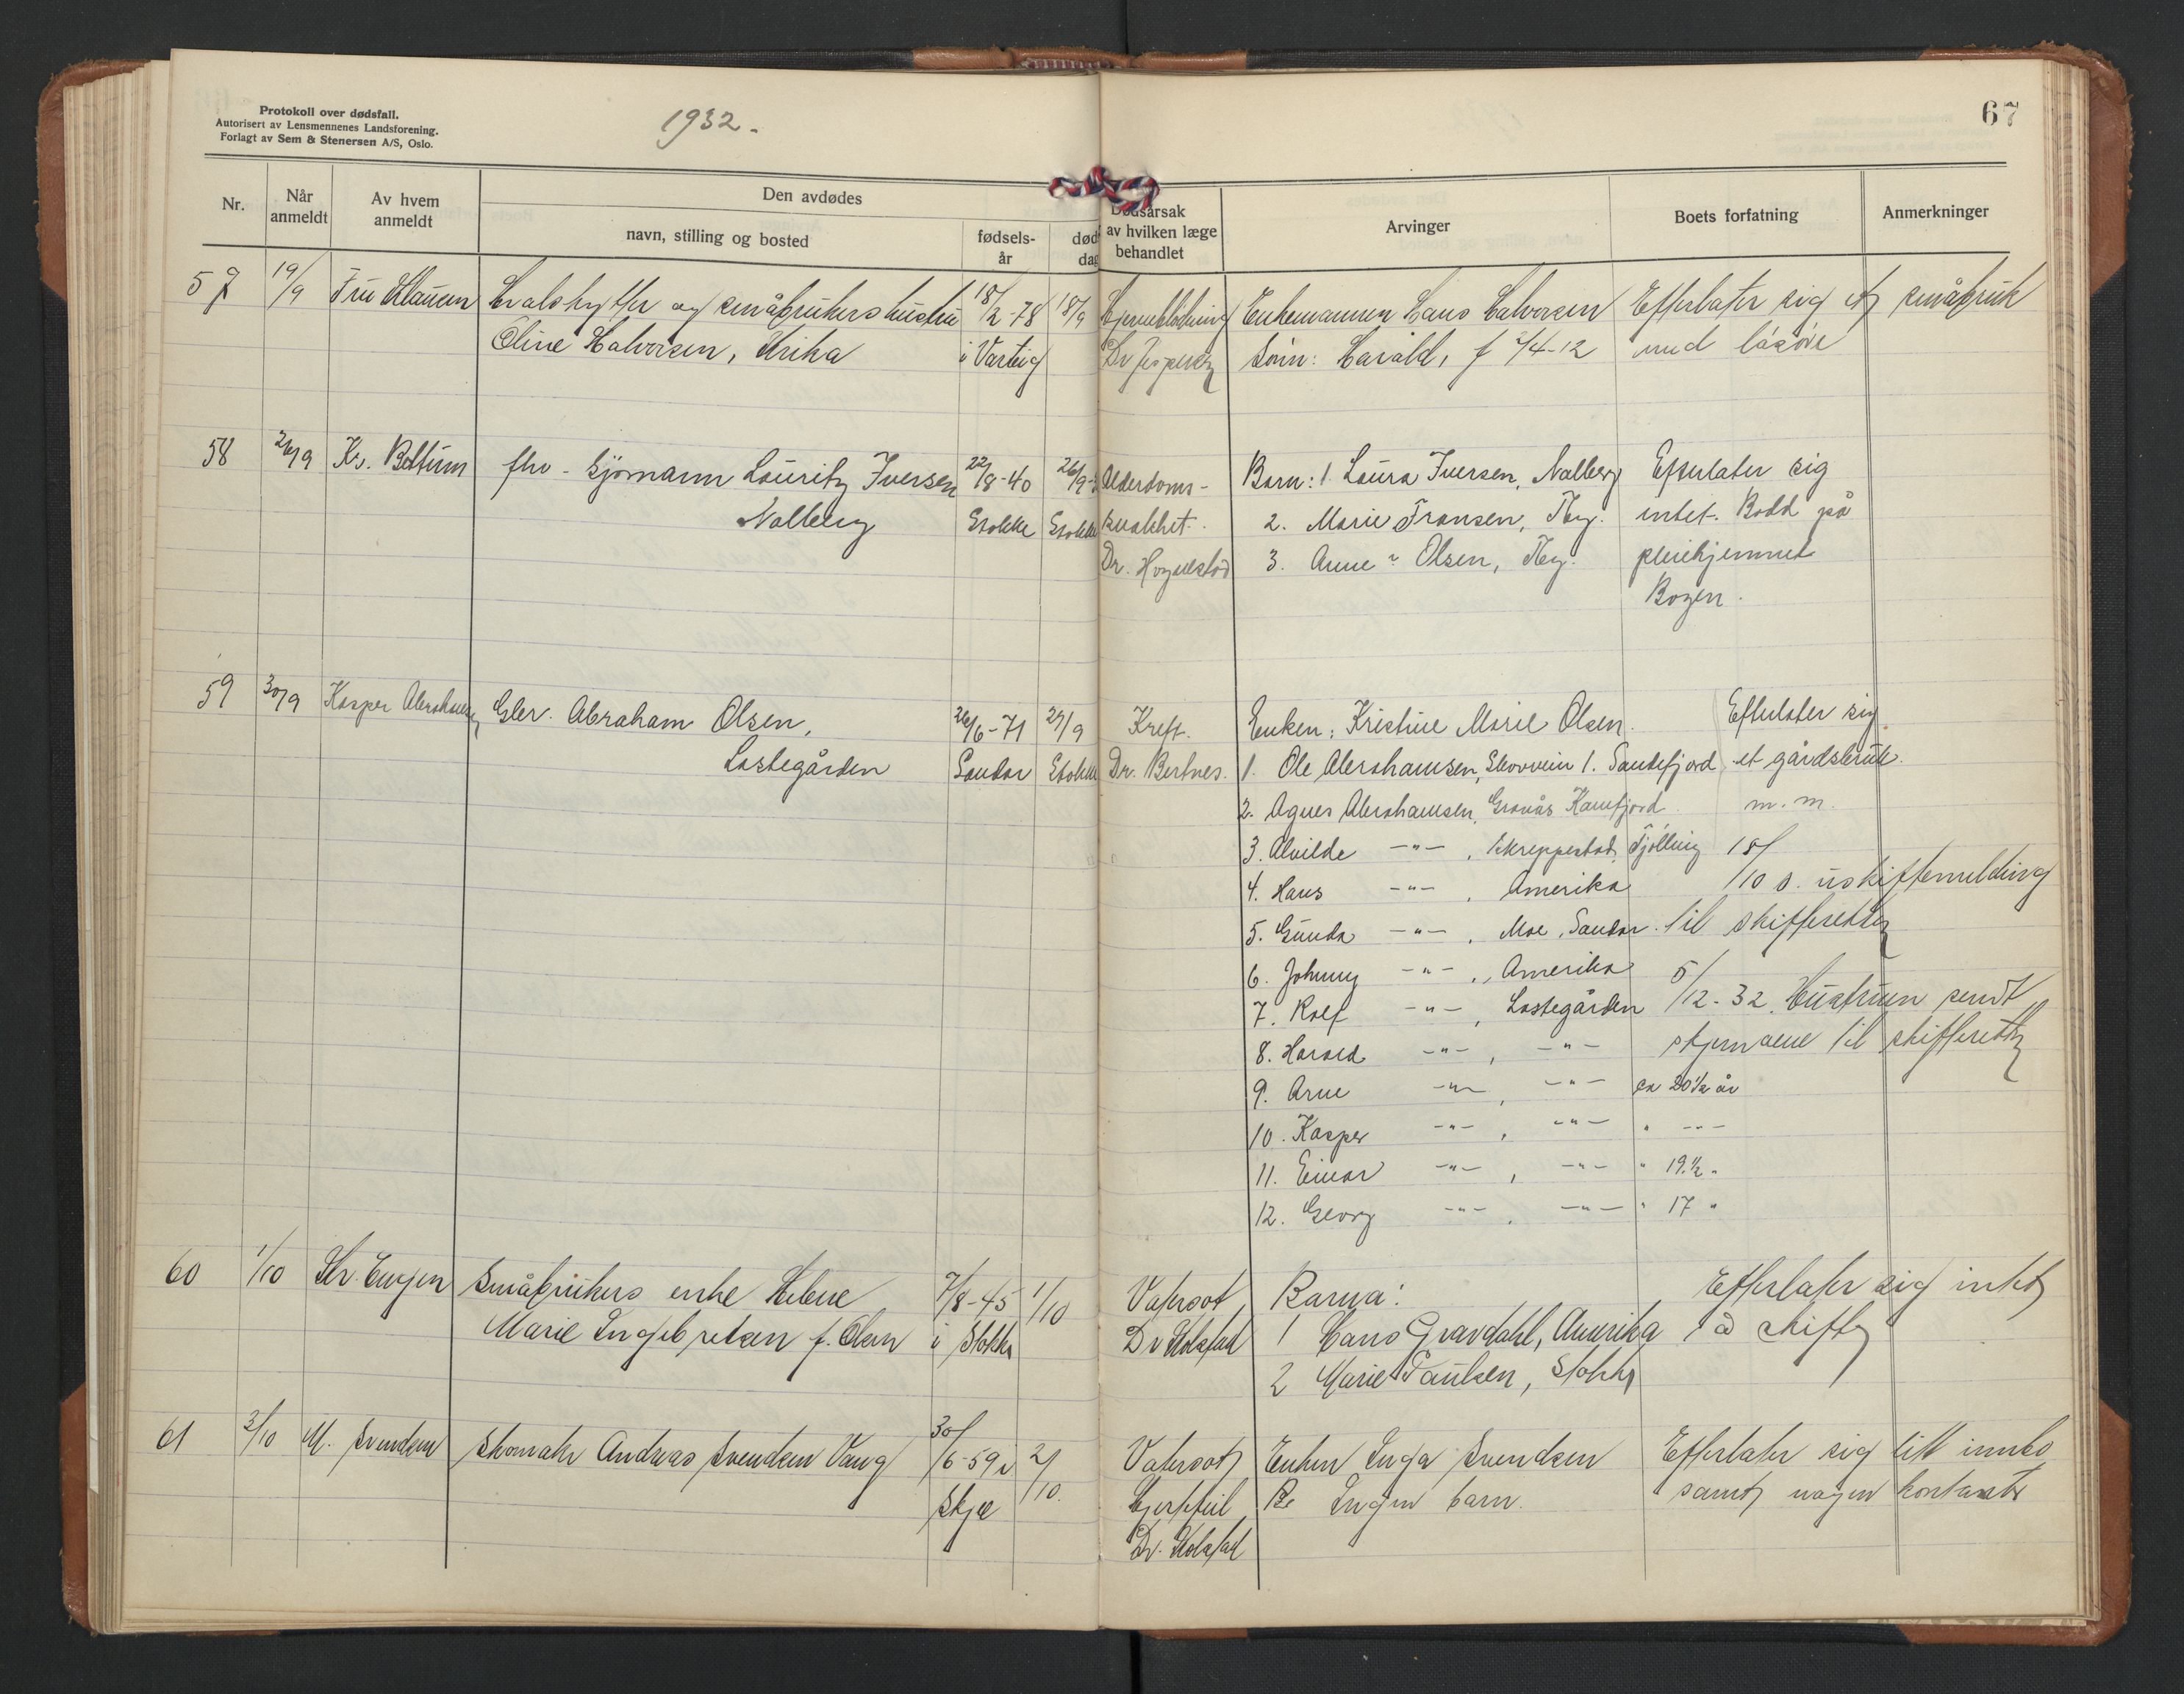 Protokoll over dødsfall.
Autorisert av Lensmennenes Landsforening.
Forlagt av Sem & Stenersen A/S, Oslo.
1932.
67
Nr.
Når anmeldt
Av hvem anmeldt
Den avdødes
navn, stilling og bosted
fødsels-år
død
dag
Dødsårsak
av hvilken læge
behandlet
Arvinger
Boets forfatning
Anmerkninger
57 19/9 Fru Klausen Hvalskytter og småbrukers hustru 18/2-78 18/9 Hjerneblødning Enkemannen Hans Halvorsen Efterlater sig et småbruk
Oline Halvorsen, i Varteig Dr Jespersen Sønn: Harald, f /4-12 med løsøre
58 26/9 Kr. Bettum fhv. sjømann Lauritz Iversen 22/8-40 26/9 Alderdoms- Barn: 1. Laura Iversen, Nalberg Efterlater sig
Nalberg Stokke Stokke svakhet. 2. Marie Fransen, Tbg. intet. Bodd på
Dr. Hognestad 3. Anne Olsen, Tbg. pleiehjemmet
Bogen.
59 30/9 Kasper Abrahamsen Gbr. Abraham Olsen, 26/6-71 29/9 Kreft. Enken: Kristine Marie Olsen. Efterlater sig
Lostegården Sandar Stokke Dr. Bertnes. 1. Ole Abrahamsen, Skovvein 1. Sandefjord et gårdsbruk
2. Agnes Abrahamsen, Granås Kamfjord m.m.
3. Alvilde —"— , Skreppestad, Tjølling 18/
4. Hans —"— , Amerika /10 s. uskiftemelding
5. Gunda —"— , Moe, Sandar. til skifteretten
6. Johnny —"— , Amerika 5/
7. Rolf —"— , Lostegården /12-32. Hustruen sendt
8. Harald —"— , —"— skjemaene til skifteretten
9. Arne —"— , —"— ca 20 1/2 år
10. Kasper —"— , —"— " —"—
11. Einar —"— , —"— " 19 1/2 "
12. Georg —"— , —"— " 17 "
60 1/10 Kr. Engen Småbrukers enke Helene 7/8-45 1/10 Vatersot Barna: Efterlater sig intet
Marie Engebretsen f. Olsen i Stokke Dr Holstad 1 Hans Gravdahl, Amerika å skifte
2 Marie Paulsen, Stokke
61 3/10 M. Svendsen Skomaker Andreas Svendsen Vang 30/6-59 i 2/10. Vatersot Enken Inga Svendsen Efterlater sig litt innbo
Skjee Hjertefeil Ingen barn. samt nogen kontanter
Dr. Holstad